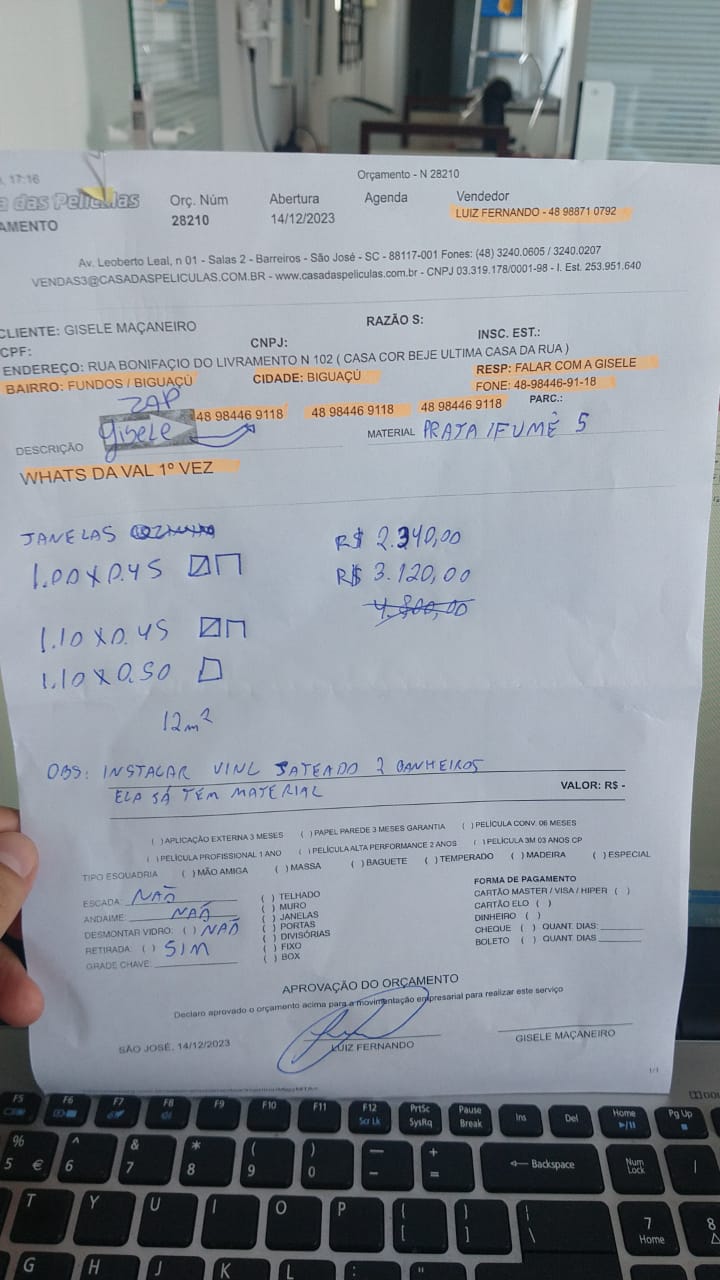 , 17:16
Orçamento - N 28210
a das Películas
Orç. Núm Abertura Agenda Vendedor
AMENTO 28210 14/12/2023 LUIZ FERNANDO - 48 98871 0792
Av. Leoberto Leal, n 01 - Salas 2 - Barreiros - São José - SC - 88117-001 Fones: (48) 3240.0605 / 3240.0207
VENDAS3@CASADASPELICULAS.COM.BR - www.casadaspeliculas.com.br - CNPJ 03.319.178/0001-98 - I. Est. 253.951.640
CLIENTE: GISELE MAÇANEIRO RAZÃO S:
CPF: CNPJ: INSC. EST.:
ENDEREÇO: RUA BONIFAÇIO DO LIVRAMENTO N 102 ( CASA COR BEJE ULTIMA CASA DA RUA )
BAIRRO: FUNDOS / BIGUAÇÚ CIDADE: BIGUAÇÚ RESP: FALAR COM A GISELE
FONE: 48-98446-91-18
ZAP
48 98446 9118 48 98446 9118 48 98446 9118 PARC.:
DESCRIÇÃO Gisele MATERIAL PRATA/FUMÊ 5
WHATS DA VAL 1º VEZ
JANELAS R$ 2.340,00
1.00 X 0.45 R$ 3.120,00
4.800,00
1.10 X 0.45
1.10 X 0.50
12m²
OBS: INSTALAR VINL JATEADO 2 BANHEIROS
ELA JÁ TEM MATERIAL VALOR: R$ -
( ) APLICAÇÃO EXTERNA 3 MESES ( ) PAPEL PAREDE 3 MESES GARANTIA ( ) PELÍCULA CONV. 06 MESES
( ) PELÍCULA PROFISSIONAL 1 ANO ( ) PELÍCULA ALTA PERFORMANCE 2 ANOS ( ) PELÍCULA 3M 03 ANOS CP
TIPO ESQUADRIA ( ) MÃO AMIGA ( ) MASSA ( ) BAGUETE ( ) TEMPERADO ( ) MADEIRA ( ) ESPECIAL
ESCADA: NÃO
ANDAIME: NÃO
DESMONTAR VIDRO: ( ) NÃO
RETIRADA: ( ) SIM
GRADE CHAVE:
( ) TELHADO
( ) MURO
( ) JANELAS
( ) PORTAS
( ) DIVISÓRIAS
( ) FIXO
( ) BOX
FORMA DE PAGAMENTO
CARTÃO MASTER / VISA / HIPER ( )
CARTÃO ELO ( )
DINHEIRO ( )
CHEQUE ( ) QUANT. DIAS:
BOLETO ( ) QUANT DIAS
APROVAÇÃO DO ORÇAMENTO
Declaro aprovado o orçamento acima para a movimentação empresarial para realizar este serviço
SÃO JOSÉ, 14/12/2023 LUIZ FERNANDO GISELE MAÇANEIRO
1/1
F5 F6 F7 F8 F9 F10 F11 F12 PrtSc Pause Ins Del Home Pg Up
Scr Lk SysRq Break
% ^ & * ( ) — +
5 € 6 7 8 9 0 - = Backspace Num Lock /
T Y U I O P { [ } ] | \ 7 Home 8
G H J K L : "